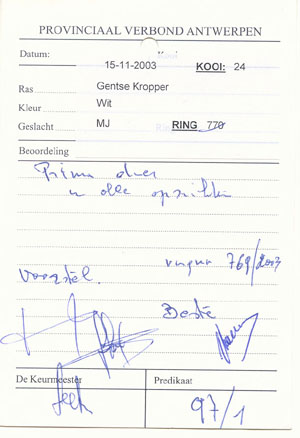 PROVINCIAAL VERBOND ANTWERPEN
Datum: 15-11-2003 KOOI: 24
Ras Gentse Kropper
Kleur Wit
Geslacht MJ RING 770
Beoordeling
Prima dier
in alle opzichten
ringnr 769/2003
Voorstel. Beste
De Keurmeester Predikaat
97/1